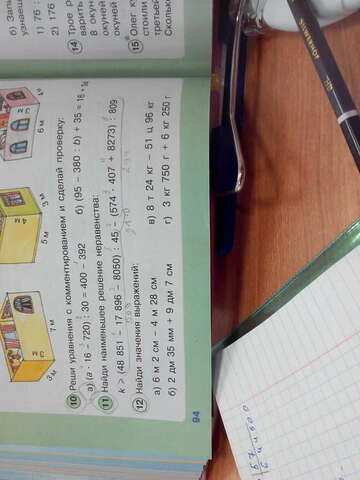 10 Реши уравнения с комментированием и сделай проверку:
а) (a · 16 – 720) : 30 = 400 – 392 б) (95 – 380 : b) + 35 = 16 ·
11 Найди наименьшее решение неравенства:
k > (48 851 – 17 896 – 8050) : 45 – (574 · 407 + 8273) : 809
12 Найди значения выражений:
а) 6 м 2 см – 4 м 28 см в) 8 т 24 кг – 51 ц 96 кг
б) 2 дм 35 мм + 9 дм 7 см г) 3 кг 750 г + 6 кг 250 г
94
3 м
7 м
3 м
5 м
4 м
3 м
6 м
б) Запи
узнаеш
1) 76 :
2) 176
14 Трое р
варить
8 окуне
окуней
окуней
15 Олег ку
стоили
третьей
Скольк